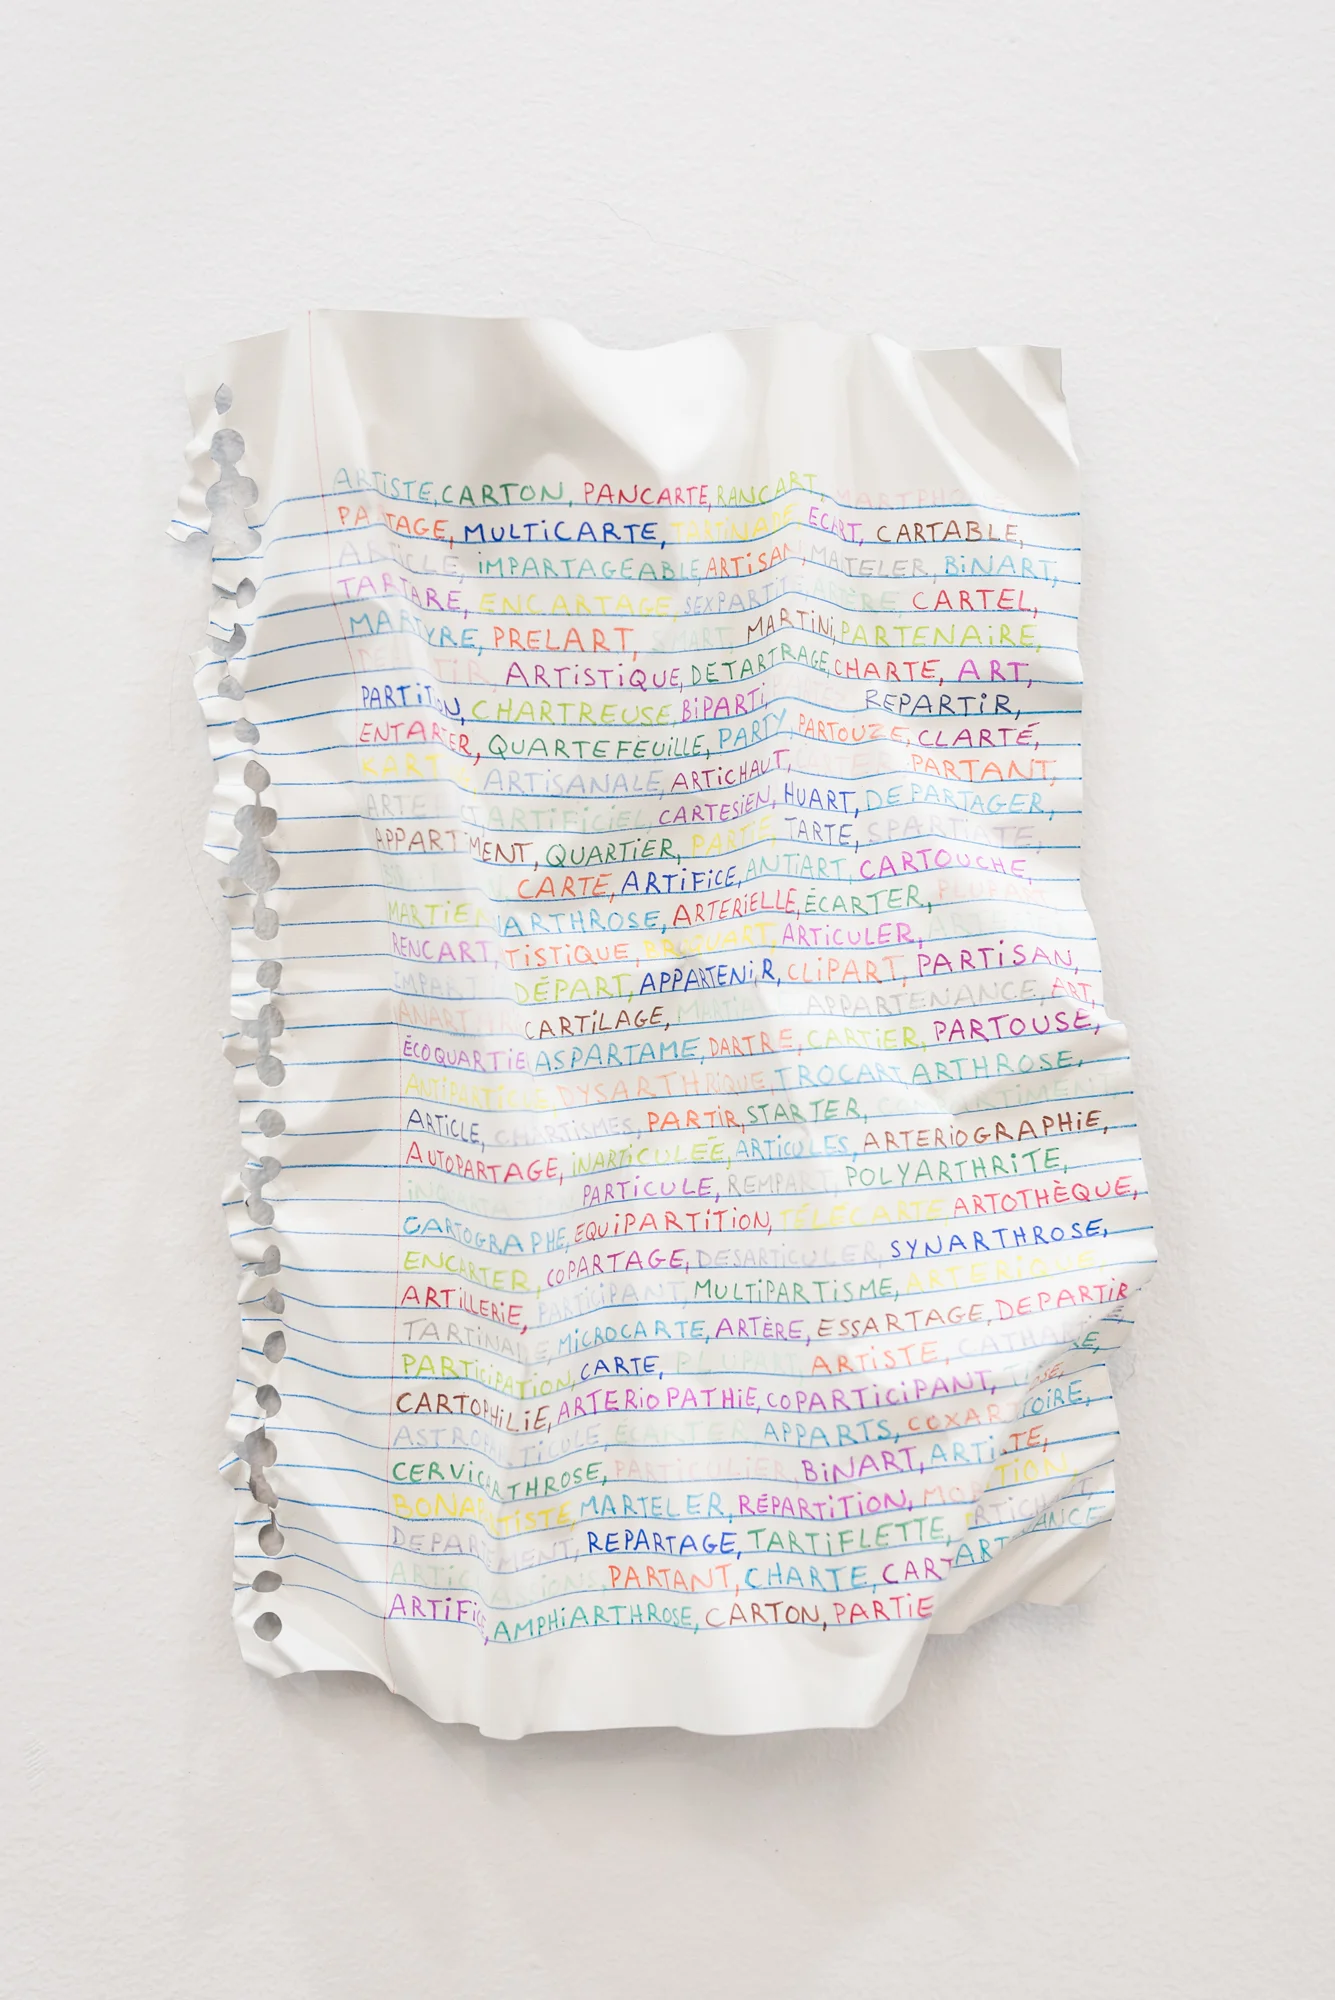 ARTiSTE, CARTON, PANCARTE, RANCART,
PARTAGE, MULTiCARTE, TARTiNADE, ECART, CARTABLE,
ARTiCLE, iMPARTAGEABLE, ARTiSAN, MARTELER, BiNART,
TARTARE, ENCARTAGE, SEXPARTiTE, ARTÈRE, CARTEL,
MARTYRE, PRELART, SMART, MARTiNi, PARTENAiRE,
ARTiSTiQUE, DETARTRAGE, CHARTE, ART,
PARTiTiON, CHARTREUSE, BiPARTi, REPARTiR,
ENTARTER, QUARTEFEUiLLE, PARTY, PARTOUZE, CLARTÉ,
ARTiSANALE, ARTiCHAUT, PARTANT,
ARTEFACT, ARTiFiCiEL, CARTESiEN, HUART, DEPARTAGER,
APPARTiMENT, QUARTiER, PARTiE, TARTE, SPARTiATE,
CARTE, ARTiFiCE, ANTiART, CARTOUCHE,
MARTiEN, ARTHROSE, ARTERiELLE, ÉCARTER, PLUPART,
RENCART, TiSTiQUE, BROQUART, ARTiCULER,
DÉPART, APPARTENiR, CLiPART, PARTiSAN,
CARTiLAGE, APPARTENANCE, ART,
ÉCOQUARTiE, ASPARTAME, DARTRE, CARTiER, PARTOUSE,
ANTiPARTiCULE, DYSARTHRiQUE, TROCART, ARTHROSE,
ARTiCLE, CHARTiSMES, PARTiR, STARTER, COMPARTiMENT,
AUTOPARTAGE, iNARTiCULÉE, ARTiCULES, ARTERiOGRAPHiE,
PARTiCULE, REMPART, POLYARTHRiTE,
CARTOGRAPHE, EQUiPARTiTiON, TÉLÉCARTE, ARTOTHÈQUE,
ENCARTER, COPARTAGE, DESARTiCULER, SYNARTHROSE,
ARTiLLERiE, PARTiCiPANT, MULTiPARTiSME, ARTERiQUE,
TARTiNADE, MiCROCARTE, ARTÈRE, ESSARTAGE, DEPARTiR
PARTiCiPATiON, CARTE, PLUPART, ARTiSTE, CATHARE,
CARTOPHiLiE, ARTERiOPATHiE, COPARTiCiPANT,
ÉCARTER, APPARTS,
CERViCARTHROSE, PARTiCULiER, BiNART, ARTiSTE,
BONAPARTiSTE, MARTELER, RÉPARTiTiON,
DEPARTEMENT, REPARTAGE, TARTiFLETTE, ARTiCHAUT,
PARTANT, CHARTE, CART
ARTiFiCE, AMPHiARTHROSE, CARTON, PARTiE